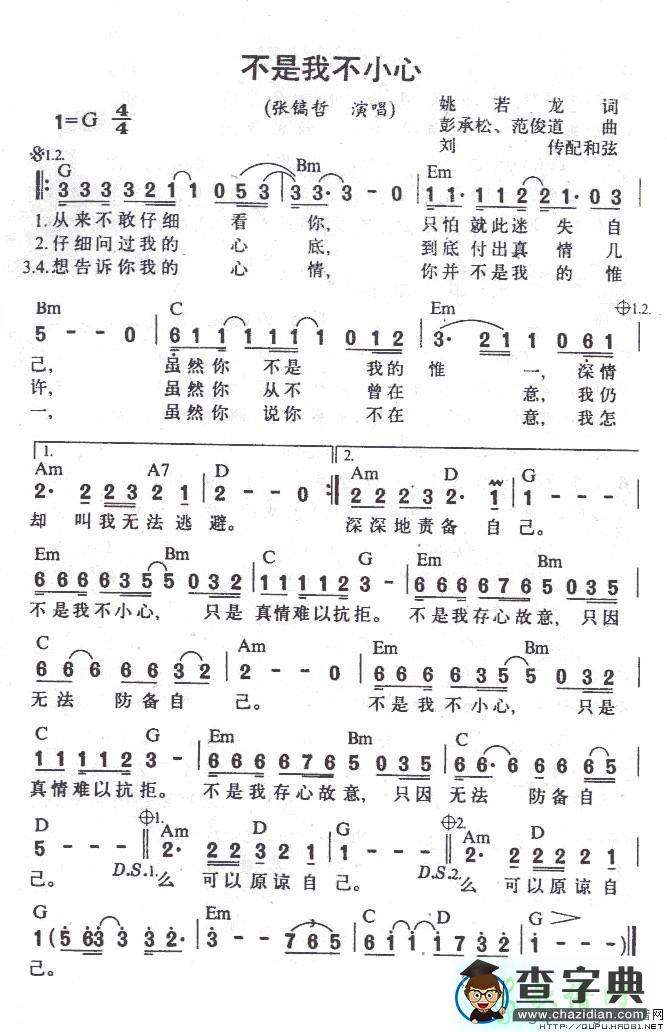 不是我不小心
(张镐哲 演唱)
姚若龙 词
彭承松、范俊道 曲
刘 传配和弦
1=G 4/4
𝄋1.2.
G Bm Em
‖: 3 3 3 3 3 2 1 1 0 5 3 | 3 3· 3 - 0 | 1 1· 1 1 2 2 1· 0 3
1.从来不敢仔细 看 你, 只怕就此迷失自
2.仔细问过我的 心 底, 到底付出真情几
3.4.想告诉你我的 心 情, 你并不是我的惟
Bm C Em 1.2.
5 - - 0 | 6 1 1 1 1 1 1 1 0 1 2 | 3· 2 1 1 0 6 1
己, 虽然你 不是 我的 惟 一, 深情
许, 虽然你 从不 曾在 意, 我仍
一, 虽然你 说你 不在 意, 我怎
1. 2.
Am A7 D Am D G
2· 2 2 3 2 1 | 2 - - 0 :‖ 2 2 2 3 2· 1 | 1 - - -
却 叫我无法逃避。 深深地责备 自己。
Em Bm C G Em Bm
6 6 6 6 6 3 5 5 0 3 2 | 1 1 1 1 2 3 - | 6 6 6 6 6 7 6 5 0 3 5
不是我不小心, 只是 真情难以抗拒。 不是我存心故意, 只因
C Am Em Bm
6 6 6 6 6 3 2 | 2 - - 0 | 6 6 6 6 6 3 5 5 0 3 2
无法 防备自 己。 不是我不小心, 只是
C G Em Bm C
1 1 1 1 2 3 - | 6 6 6 6 6 7 6 5 0 3 5 | 6 6· 6 6 6 6 5
真情难以抗拒。 不是我存心故意, 只因 无法 防备自
D 1. Am D G 2. Am D
5 - - - ‖ 2· 2 2 2 3 2 1 | 1 - - - ‖ 2· 2 2 2 2 1
己。 D.S.1. 么 可以原谅自己。 D.S.2. 么 可以原谅自
G Em C D G
1 ( 5 6 3 3 3 3 2· | 3 - - 7 6 5 | 6 1 1 1 7 3 2 | 1 - - - ) ‖
己。
查字典
www.chazidian.com
HTTP://QUPU.HAO81.NET